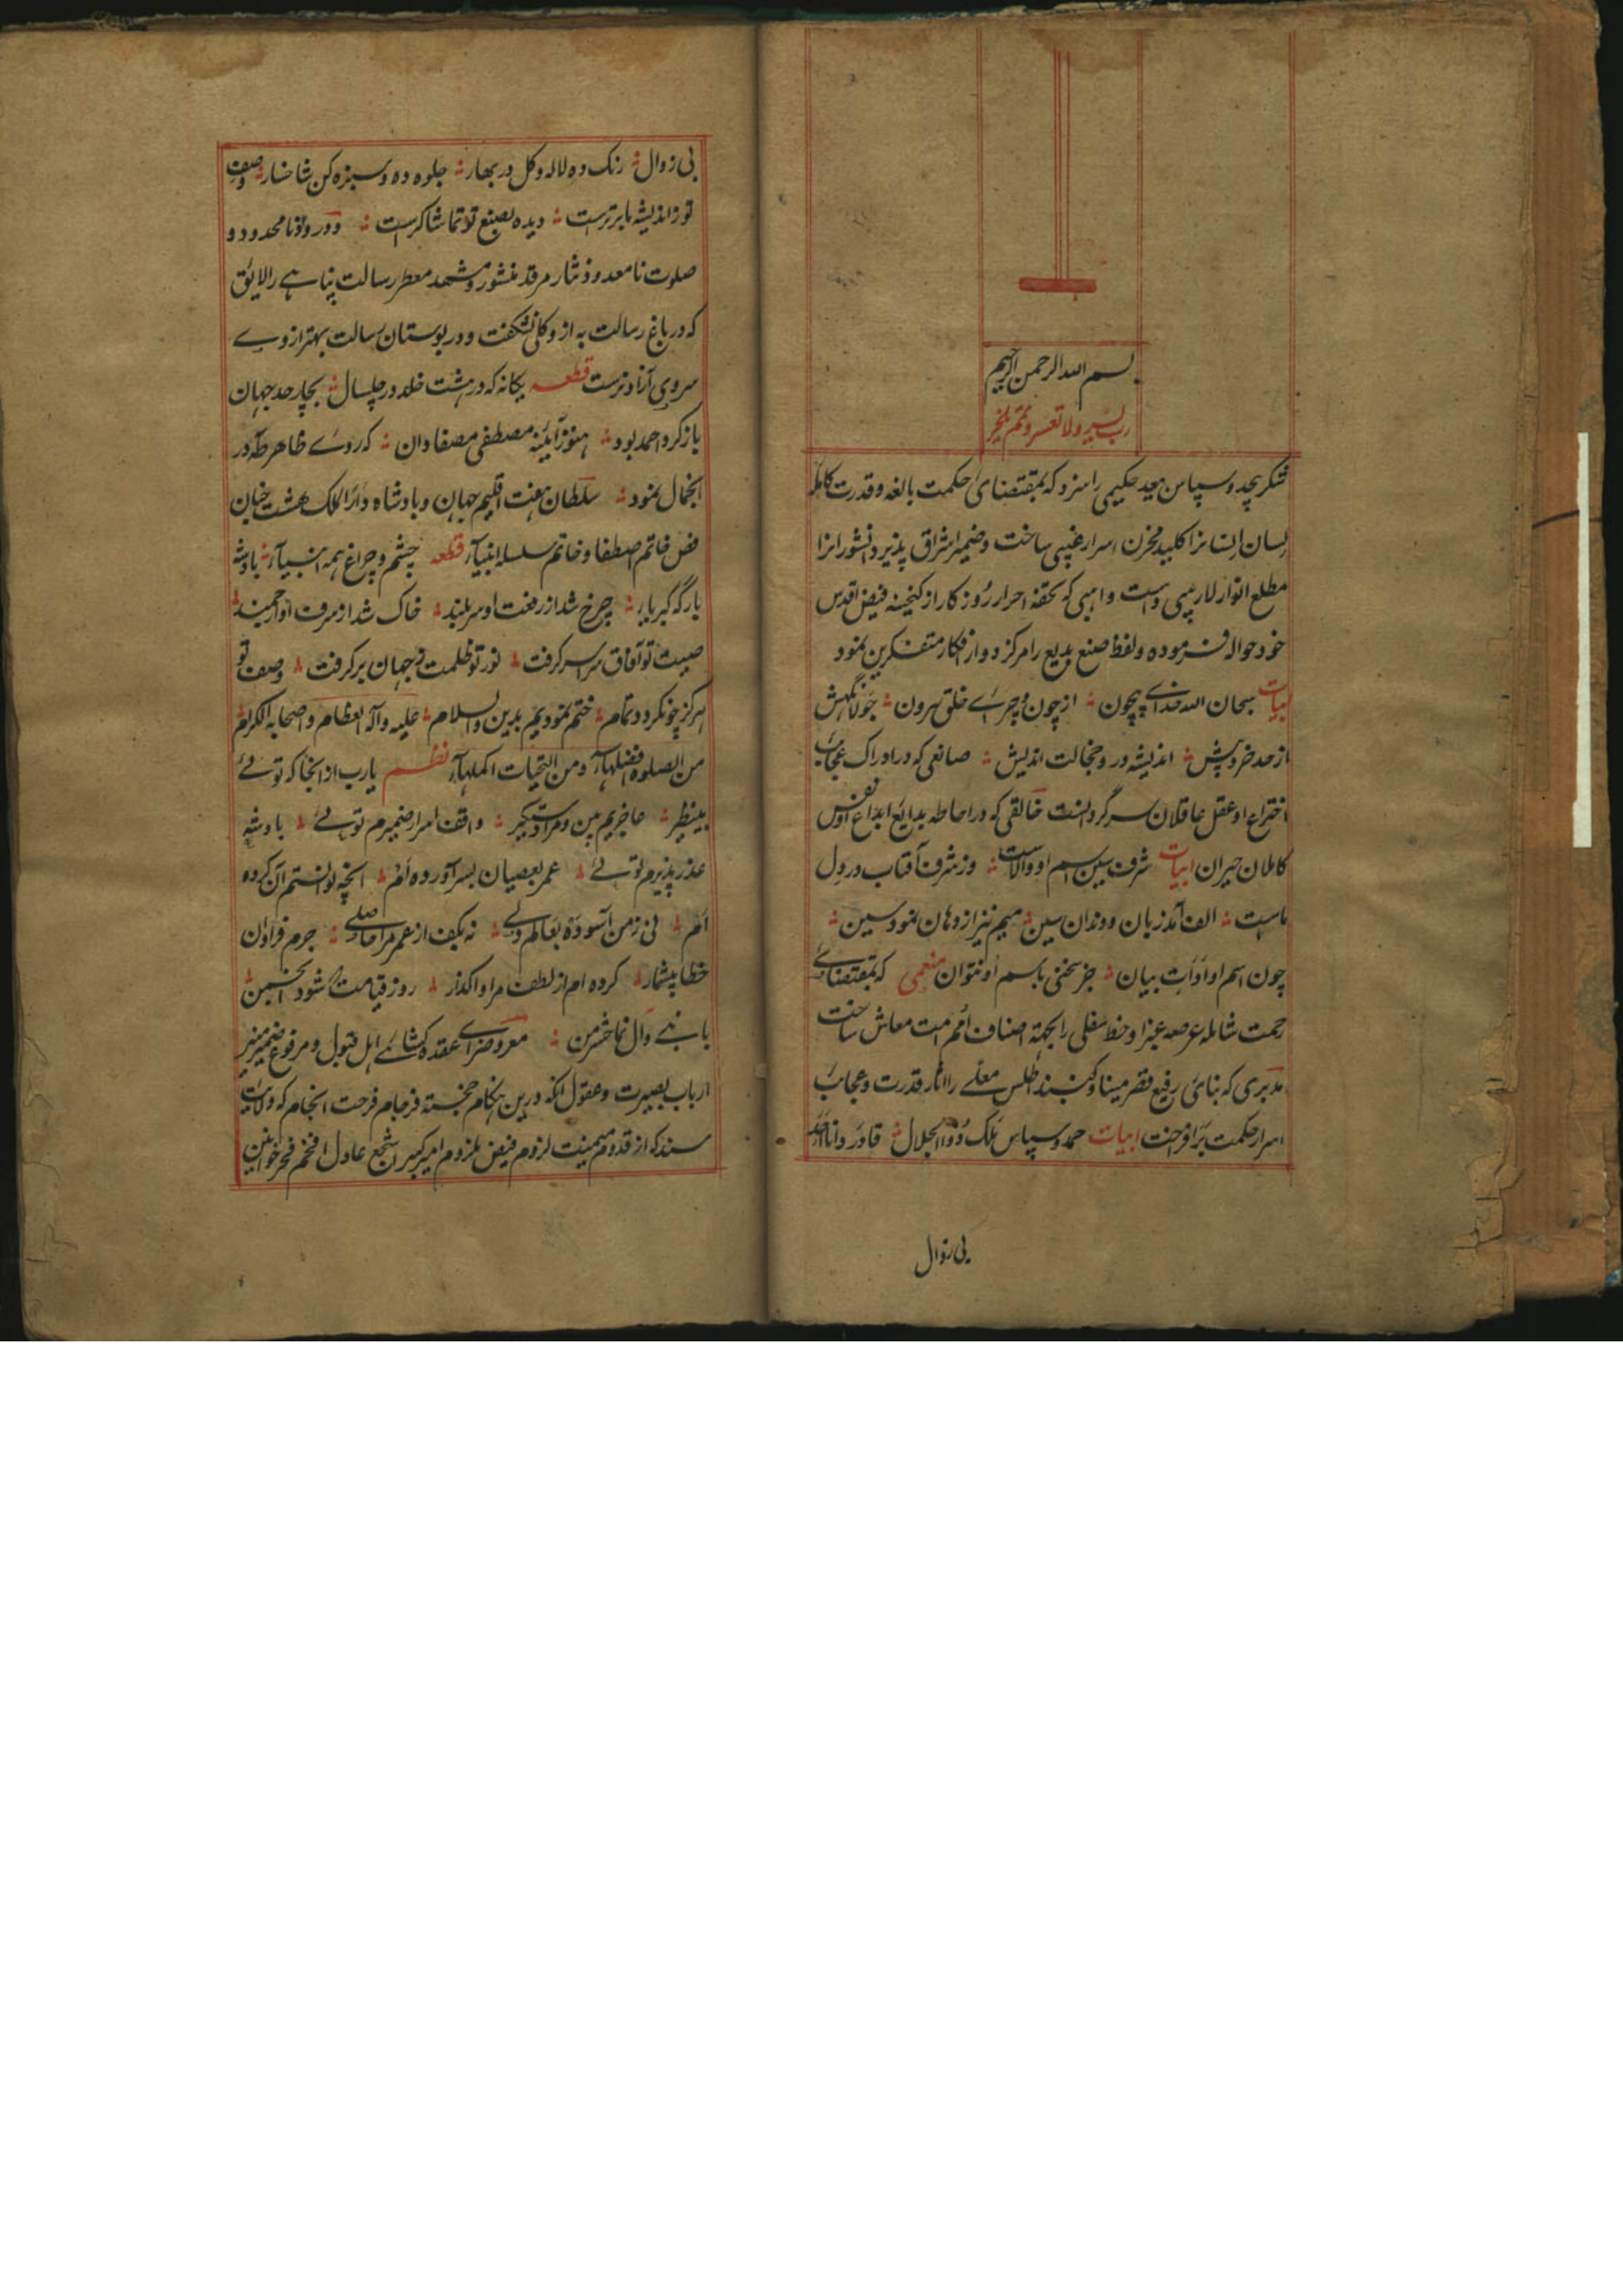 بسم الله الرحمن الرحیم
رب یسر ولا تعسر و تمم بالخیر
شکر بیحد و سپاس بیعد حکیمی را سزد که بمقتضای حکمت بالغه و قدرت کامله
لسان انسانرا کلید مخزن اسرار غیبی ساخت و ضمیر اشراق پذیر دانشورانرا
مطلع انوار لاریبی و است واهبی که تحفه احرار روزکار از کنجینه فیض اقدس
خود حواله فرموده و لفظ صنع بدیع را مرکز دوار افکار متفکرین نمود
ابیات سبحان الله خدای بیچون ؛ از چون و چرای خلق بیرون ؛ جولانکهش
از حد خرد بیش ؛ اندیشه در و خجالت اندیش ؛ صانعی که در ادراک عجایب
اختراع او عقل عاقلان سرکردانست خالقی که در احاطه بدایع ابداع او نفس
کاملان حیران ابیات شرف سین اسم او والاست ؛ وز شرف آفتاب در دل
ماست ؛ الف آمد زبان و دندان سین ؛ میم نیز از دهان نمود سین ؛
چون اسم او ادات بیان ؛ جز سخنی باسم او نتوان منعمی که بمقتضای
رحمت شامله عرصه غبرا و خط سفلی را بجهة اصناف امم امت معاش ساخت
مدبری که بنای رفیع قصر مینا و کنبند اطلس معلے را آثار قدرت و عجایب
اسرار حکمت برافروخت ابیات حمد و سپاس ملک ذوالجلال ؛ قادر و دانا احد
بی زوال
بی زوال ؛ رنک ده لاله و کل در بهار ؛ جلوه ده و سبزه کن شاخسار ؛ وصف
تو ز اندیشه ما برترست ؛ دیده بصنع تو تماشاکرست ؛ و درود نامحدود و
صلوت نامعدود نثار مرقد منشور و مشهد معطر رسالت پناہے را لایق
که در باغ رسالت به از و کلی نشکفت و در بوستان رسالت بهتر از وے
سروی آزاد نرست قطعه یکانه که در هشت خلد در چلسال ؛ بچار حد جهان
باز کرد احمد بود ؛ هنوز آئینه مصطفی مصفا دان ؛ که روے ظاهر طه در
انجمال نمود ؛ سلطان هفت اقلیم جهان و بادشاه دار الملک هشت جنان
فص خاتم اصطفا و خاتم سلسله انبیآء قطعه چشم و چراغ همه انبیآء ؛ بادشه
بارکه کبریا ؛ چرخ شد از رفعت او سربلند ؛ خاک شد از شرف او ارجمند
صیت تو آفاق سراسر کرفت ؛ نور تو ظلمت ز جهان بر کرفت ؛ وصف تو
هرکز چو نکردد تمام ؛ ختم نمودیم بدین والسلام ؛ علیه و آله العظام و اصحابه الکرام
من الصلوة افضلهاء و من التحیات اکملهاء نظم یارب از انجا که توئے
بینظیر ؛ عاجزیم بین و مرا دستکیر ؛ واقف اسرار ضمیرم توئے ؛ بادشه
عذر پذیرم توئے ؛ عمر بعصیان بسر آورده ام ؛ انچه توانستم آن کرده
ام ؛ نی ز من آسوده بعالم دلے ؛ نه بکف از عمر مرا حاصلے ؛ جرم فراوان
خطا بیشمار ؛ کرده ام از لطف مرا واکذار ؛ روز قیامت که شود انجمن
با نبے و آل نما حشر من ؛ معروض راے عقده کشائے اهل قبول و مرفوع ضمیر منیر
ارباب بصیرت و عقول انکه درین هنکام خجسته فرجام فرحت انجام که ولایت
سند که از قدوم میمنت لزوم فیض ملزوم امیر کبیر شجع عادل افخم فخر خوانین